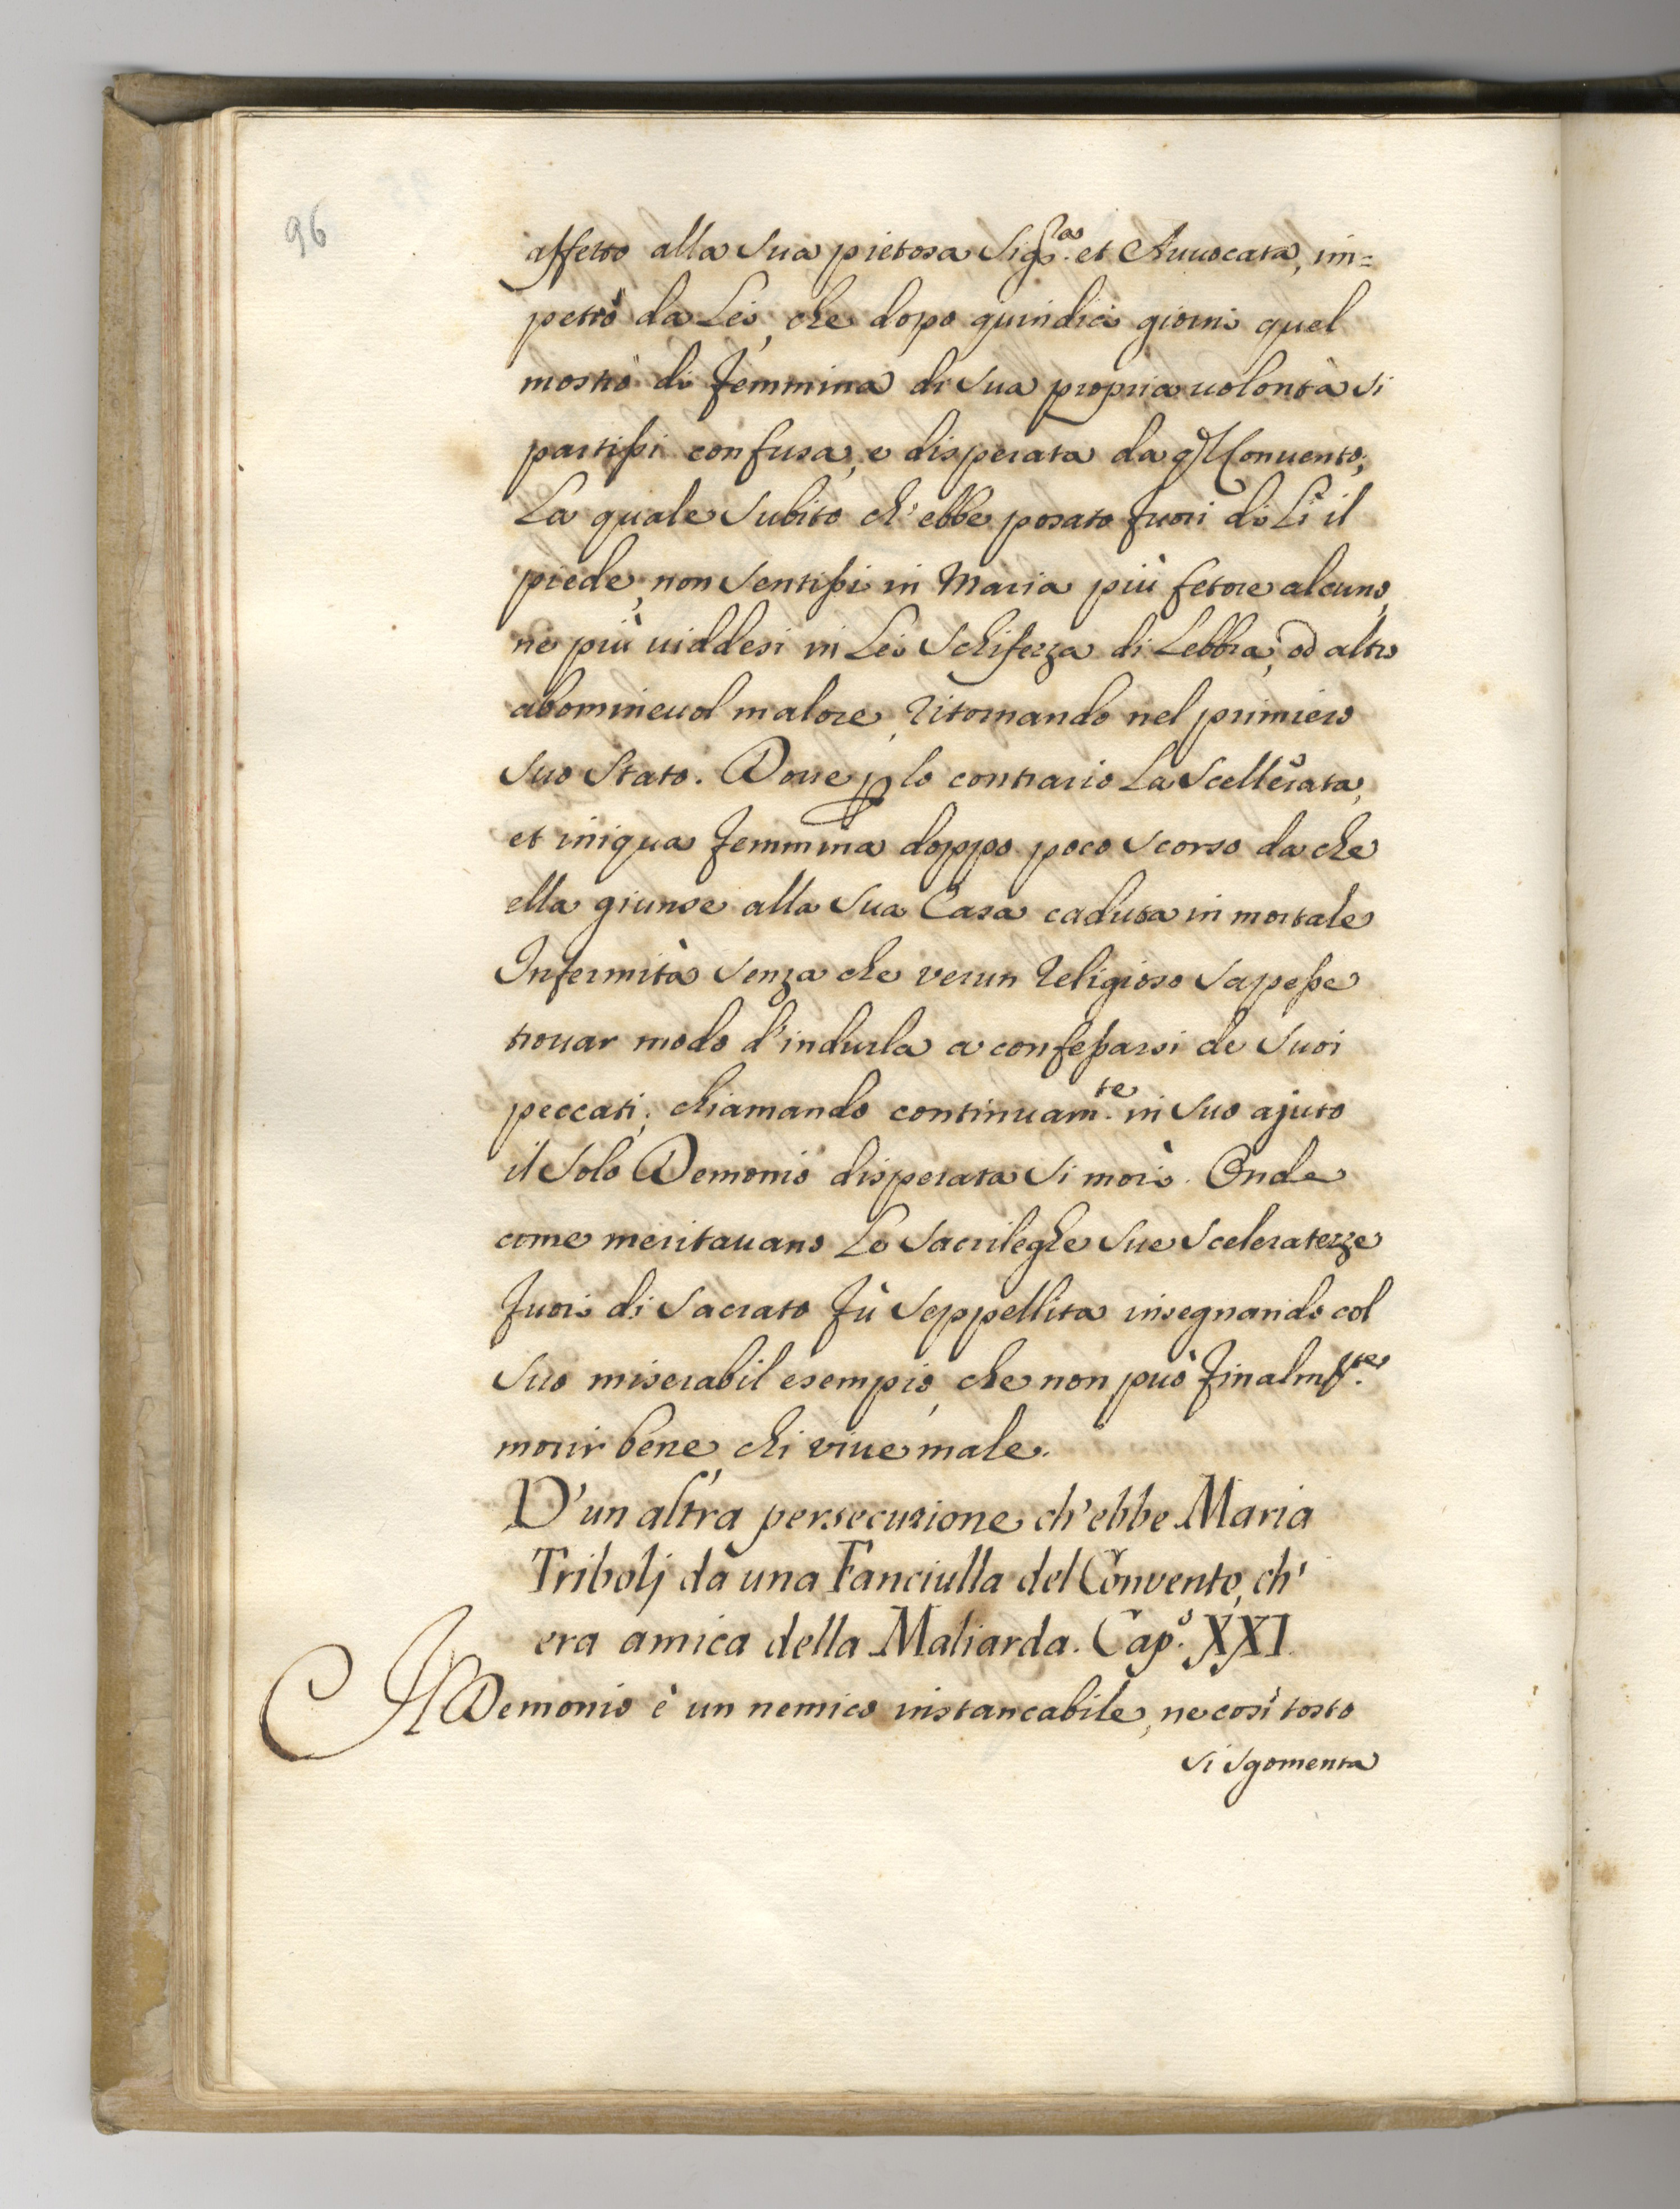 96
affetto alla sua pietosa Sig.ra et Auuocata, im=
petrò da Lei, che dopo quindici giorni quel
mostro di femmina di sua propria uolontà si
partissi confusa, e disperata da ql Conuento;
La quale subito ch'ebbe posato fuori di Lì il
piede, non sentissi in Maria più fetore alcuno,
ne più uiddesi in Lei schifezza di Lebbra, od altro
abomineuol malore, ritornando nel primiero
suo stato. Doue p lo contrario La scellerata,
et iniqua femmina doppo poco scorso da che
ella giunse alla sua Casa caduta in mortale
Infermità senza che verun religioso sapesse
trouar modo d'indurla a confessarsi de suoi
peccati; chiamando continuam.te in suo ajuto
il solo Demonio disperata si morì. Onde
come meritauano Le sacrileghe sue sceleratezze
fuori di sacrato fù seppellita insegnando col
suo miserabil esempio, che non può finalm.te
morir bene, chi viue male.
D'un altra persecuzione ch'ebbe Maria
Tribolj da una Fanciulla del Convento, ch'
era amica della Maliarda. Cap.o XXI.
Il Demonio è un nemico instancabile, ne così tosto
si sgomenta